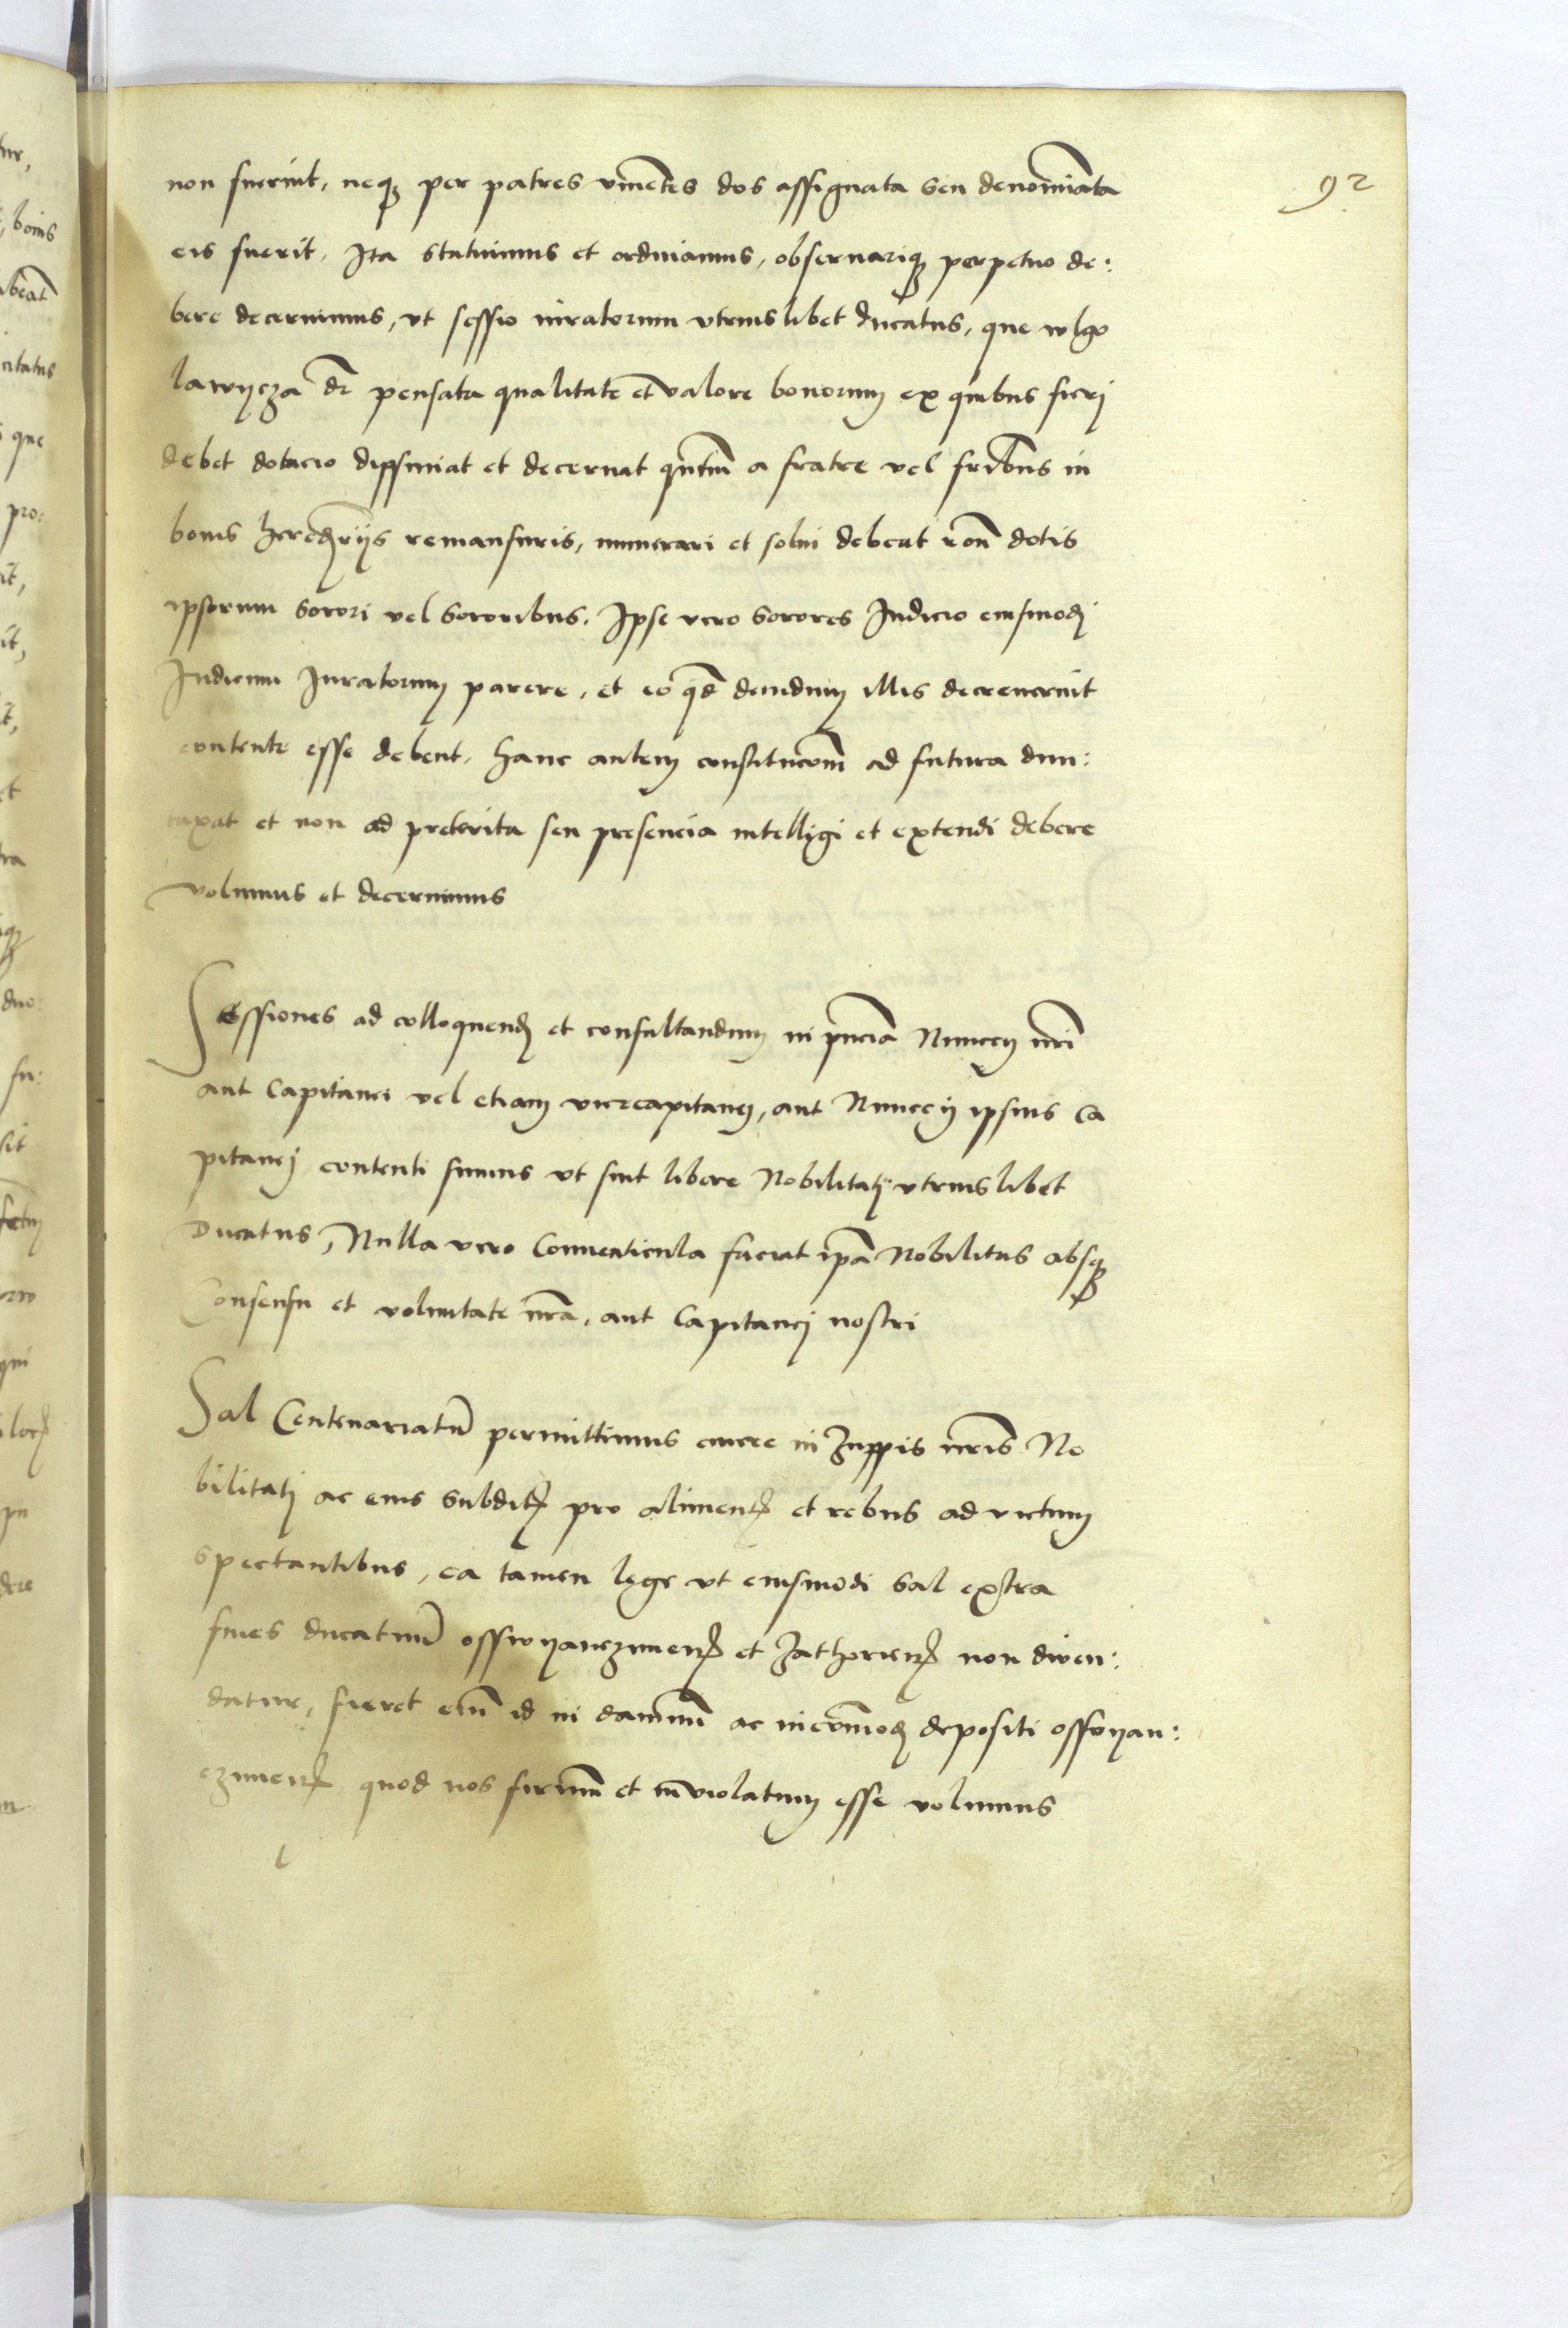 92
non fuerint, neq₃ per patres viuētes dos assignata seu denomīata
eis fuerit, Ita statuimus et ordinamus, obseruariq₃ perpetuo de:
bere decernimus, vt sessio iuratorum vtriuslibet ducatus, que wlgo
lawycza dr̄ pensata qualitate et valore bonorum ex quibus fieri
debet dotacio diffiniat et decernat qn̄tum a fratre vel fribus in
bonis heredrijs remansuris, numerari et solui debeat roñ dotis
ipsorum sorori vel sororibus. Ipse vero sorores Iudicio eiusmodj
Iudicum Iuratorum parere, et eo qd̄ dandum illis decreuerint
contente esse debent, hanc autem constitucom̄ ad futura dun:
taxat et non ad preterita seu presencia intelligi et extendi debere
volumus et decernimus
Sessiones ad colloquend et consultandum in pn̄cia Nuncij nr̄i
aut Capitanei vel etiam vicecapitanei, aut Nuncij ipsius Ca
pitanej contenti sumus vt sint libere Nobilitatj vtriuslibet
Ducatus, Nulla vero Conuenticula faciat ip̄a Nobilitas absq₃
Consensu et voluntate nr̄a, aut Capitanej nostri
Sal Centenariatū permittimus emere in Zuppis nr̄is No
bilitatj ac eius subdit pro aliment et rebus ad victum
spectantibus, ea tamen lege vt eiusmodi sal extra
fines ducatuū osswyanczimen et Zathorien non diuen:
datur, fieret em̄ id in damnū ac incōmod depositi osswyan:
czimen quod nos firmū et inviolatum esse volumus